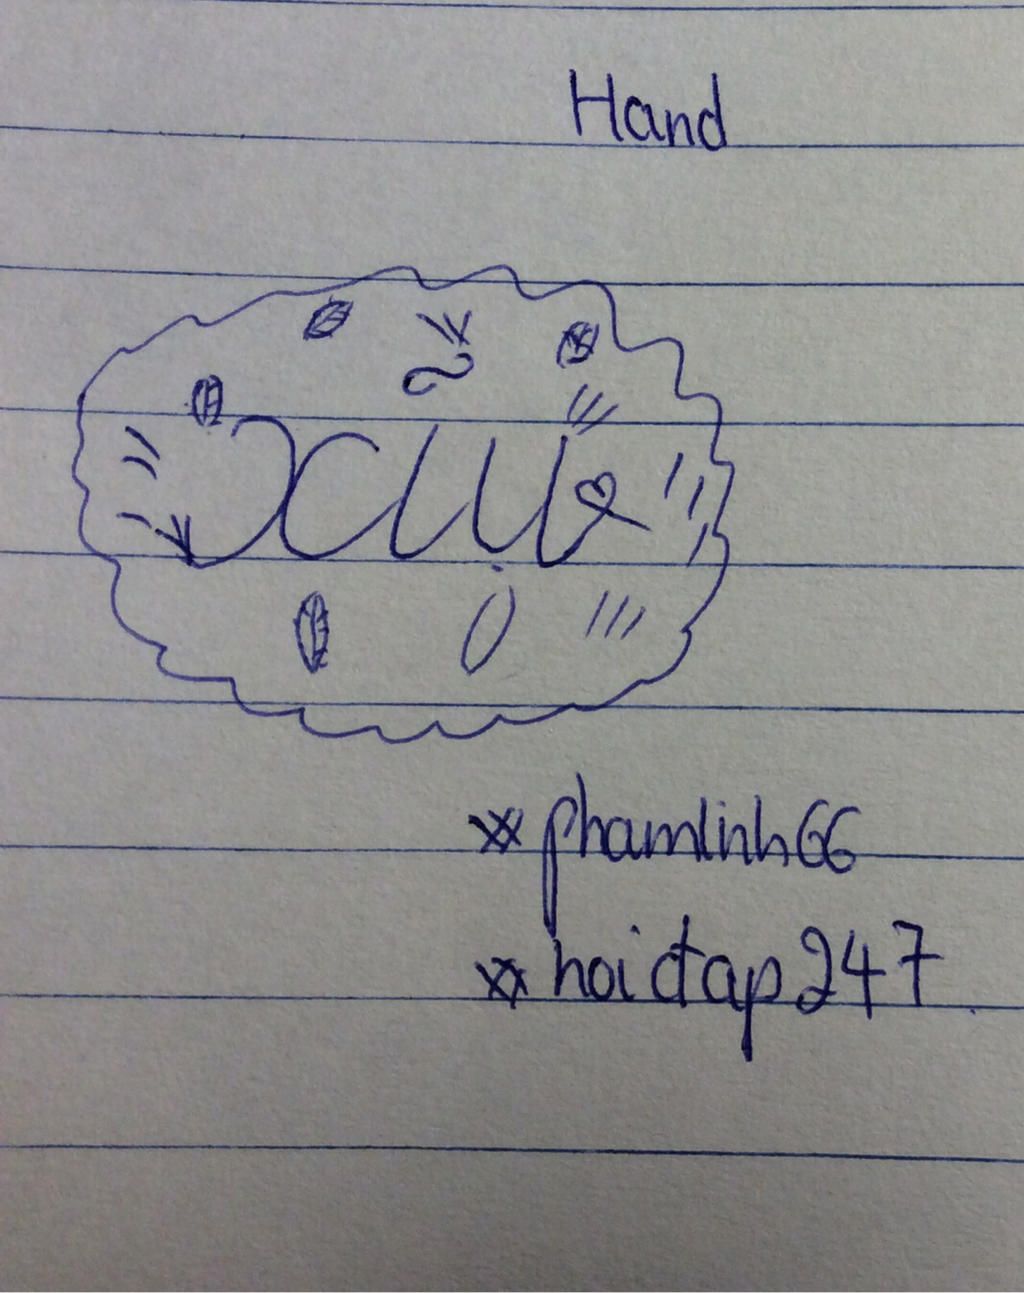 Hand
phamlinh66
hoidap247